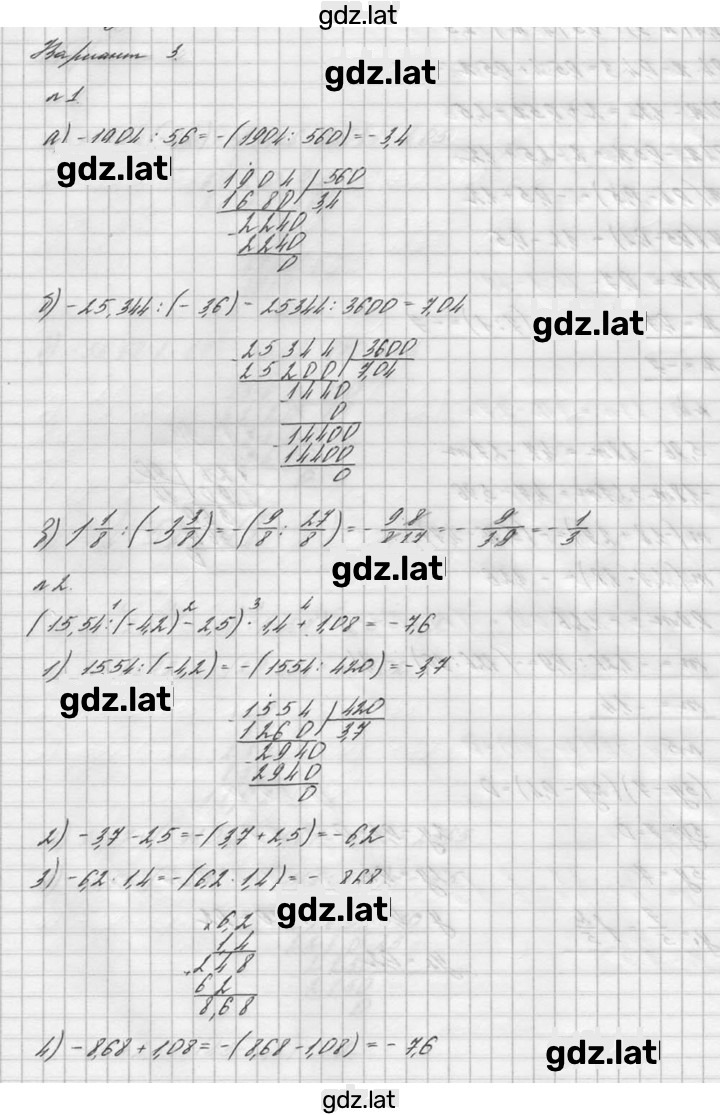 gdz.lat
Вариант 3.
gdz.lat
№1.
а) -19,04 : 5,6 = -(1904 : 560) = -3,4
gdz.lat
- 1904 | 560
1680 3,4
- 2240
2240
0
б) -25,344 : (-3,6) = 25344 : 3600 = 7,04
gdz.lat
- 25344 | 3600
25200 7,04
- 1440
0
- 14400
14400
0
в) 1 1/8 : (-3 3/8) = -(9/8 : 27/8) = - 9·8/8·27 = - 9/3·9 = - 1/3
gdz.lat
№2.
(15,54 : (-4,2) - 2,5) · 1,4 + 1,08 = -7,6
1 2 3 4
1) 15,54 : (-4,2) = -(1554 : 420) = -3,7
gdz.lat
- 1554 | 420
1260 3,7
- 2940
2940
0
2) -3,7 - 2,5 = -(3,7 + 2,5) = -6,2
3) -6,2 · 1,4 = -(6,2 · 1,4) = - 8,68
gdz.lat
× 6,2
1,4
+ 248
62
8,68
4) -8,68 + 1,08 = -(8,68 - 1,08) = -7,6
gdz.lat
gdz.lat